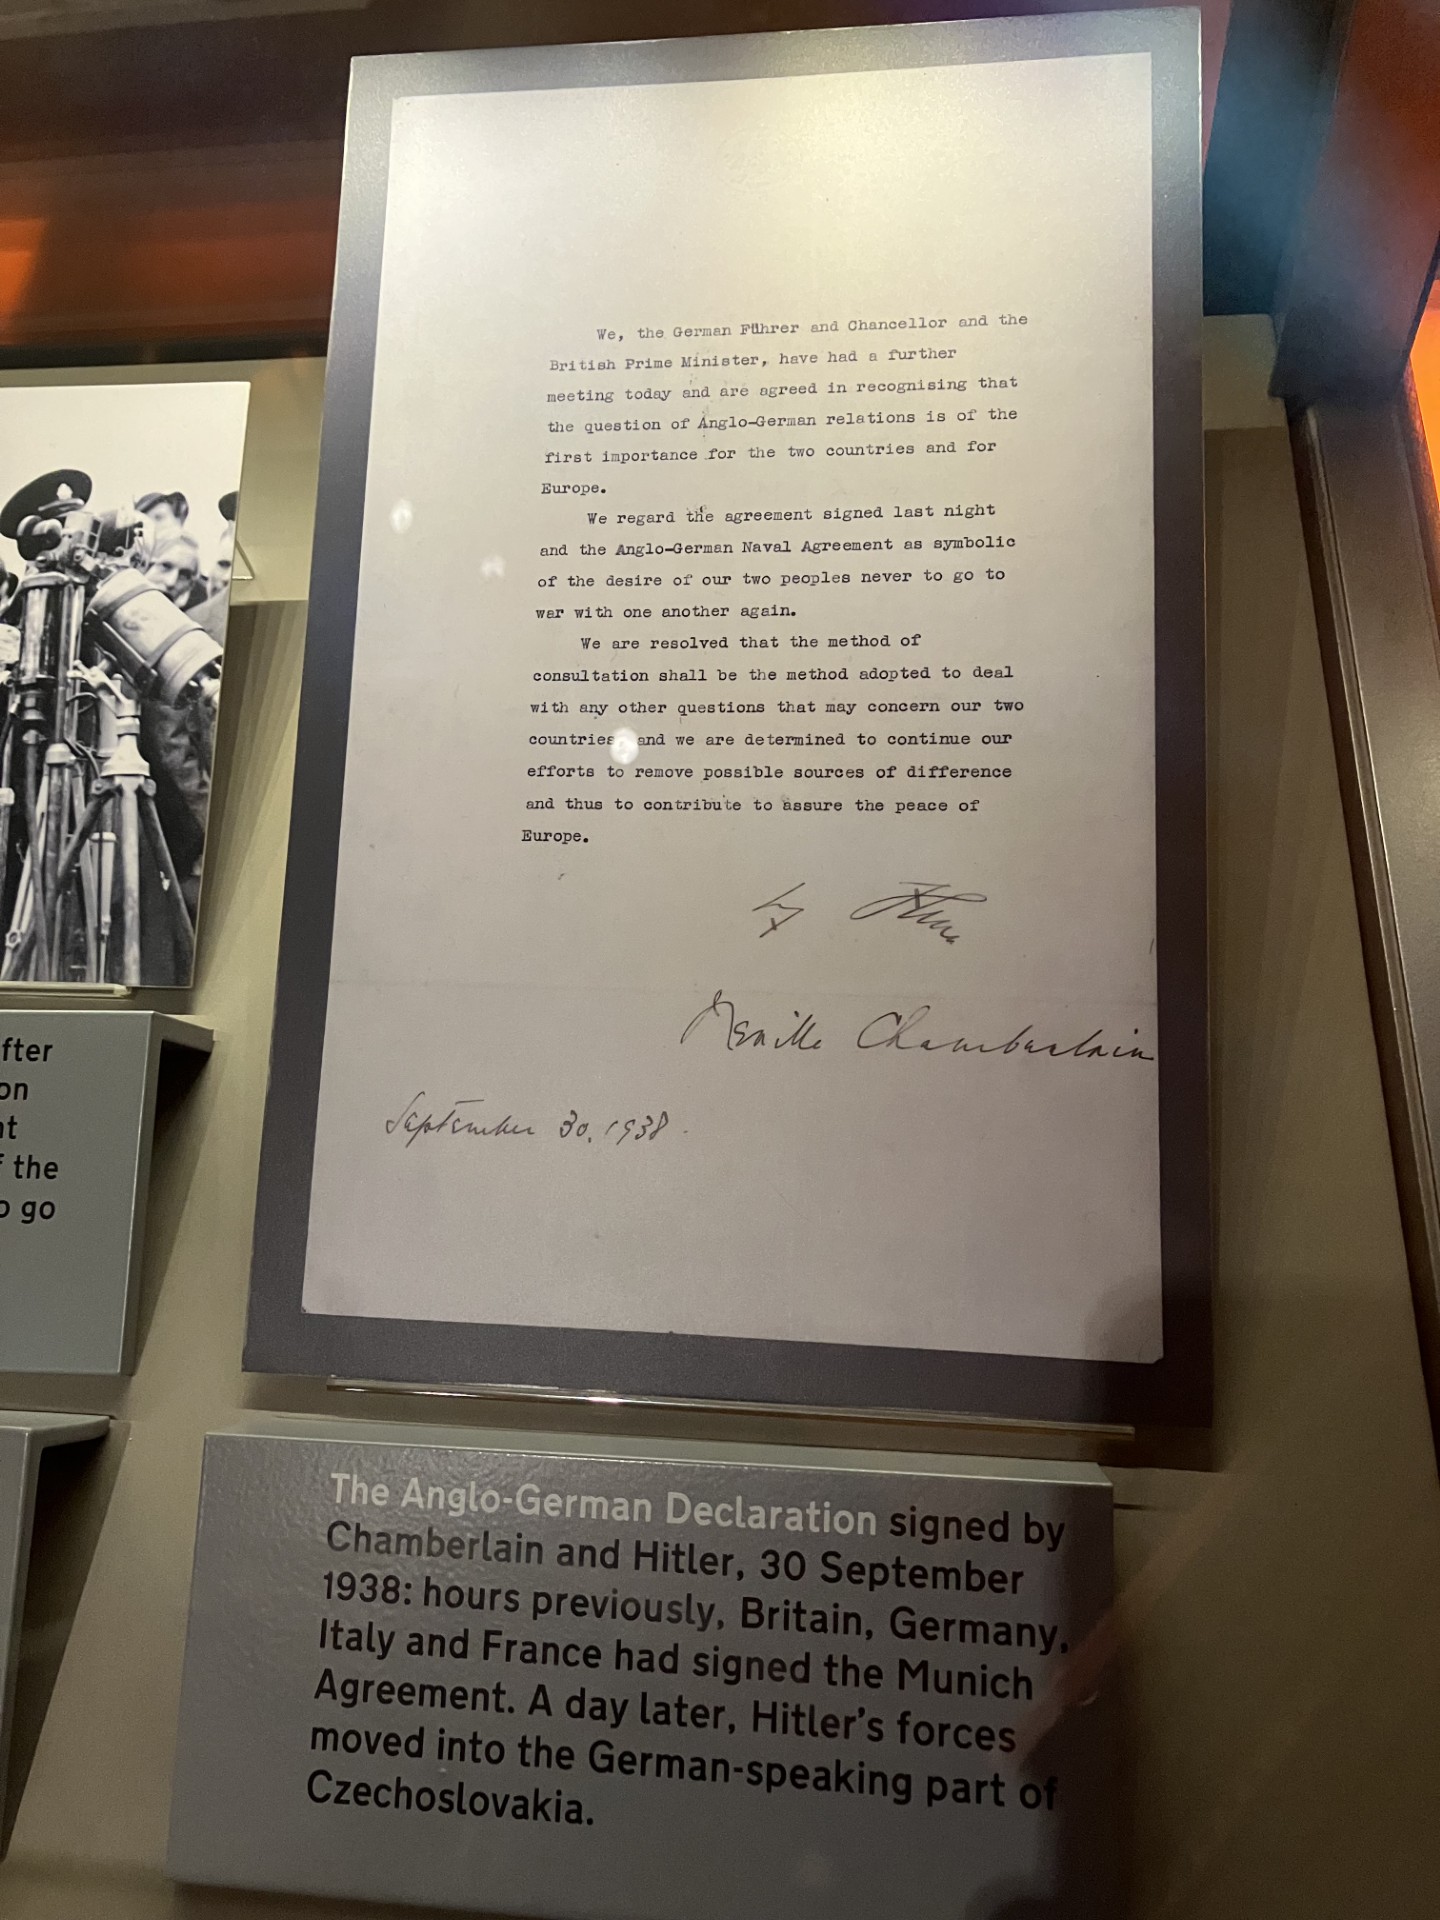 We, the German Führer and Chancellor and the
British Prime Minister, have had a further
meeting today and are agreed in recognising that
the question of Anglo-German relations is of the
first importance for the two countries and for
Europe.
We regard the agreement signed last night
and the Anglo-German Naval Agreement as symbolic
of the desire of our two peoples never to go to
war with one another again.
We are resolved that the method of
consultation shall be the method adopted to deal
with any other questions that may concern our two
countries and we are determined to continue our
efforts to remove possible sources of difference
and thus to contribute to assure the peace of
Europe.
Neville Chamberlain
September 30, 1938.
fter
on
nt
f the
o go
The Anglo-German Declaration signed by
Chamberlain and Hitler, 30 September
1938: hours previously, Britain, Germany,
Italy and France had signed the Munich
Agreement. A day later, Hitler's forces
moved into the German-speaking part of
Czechoslovakia.